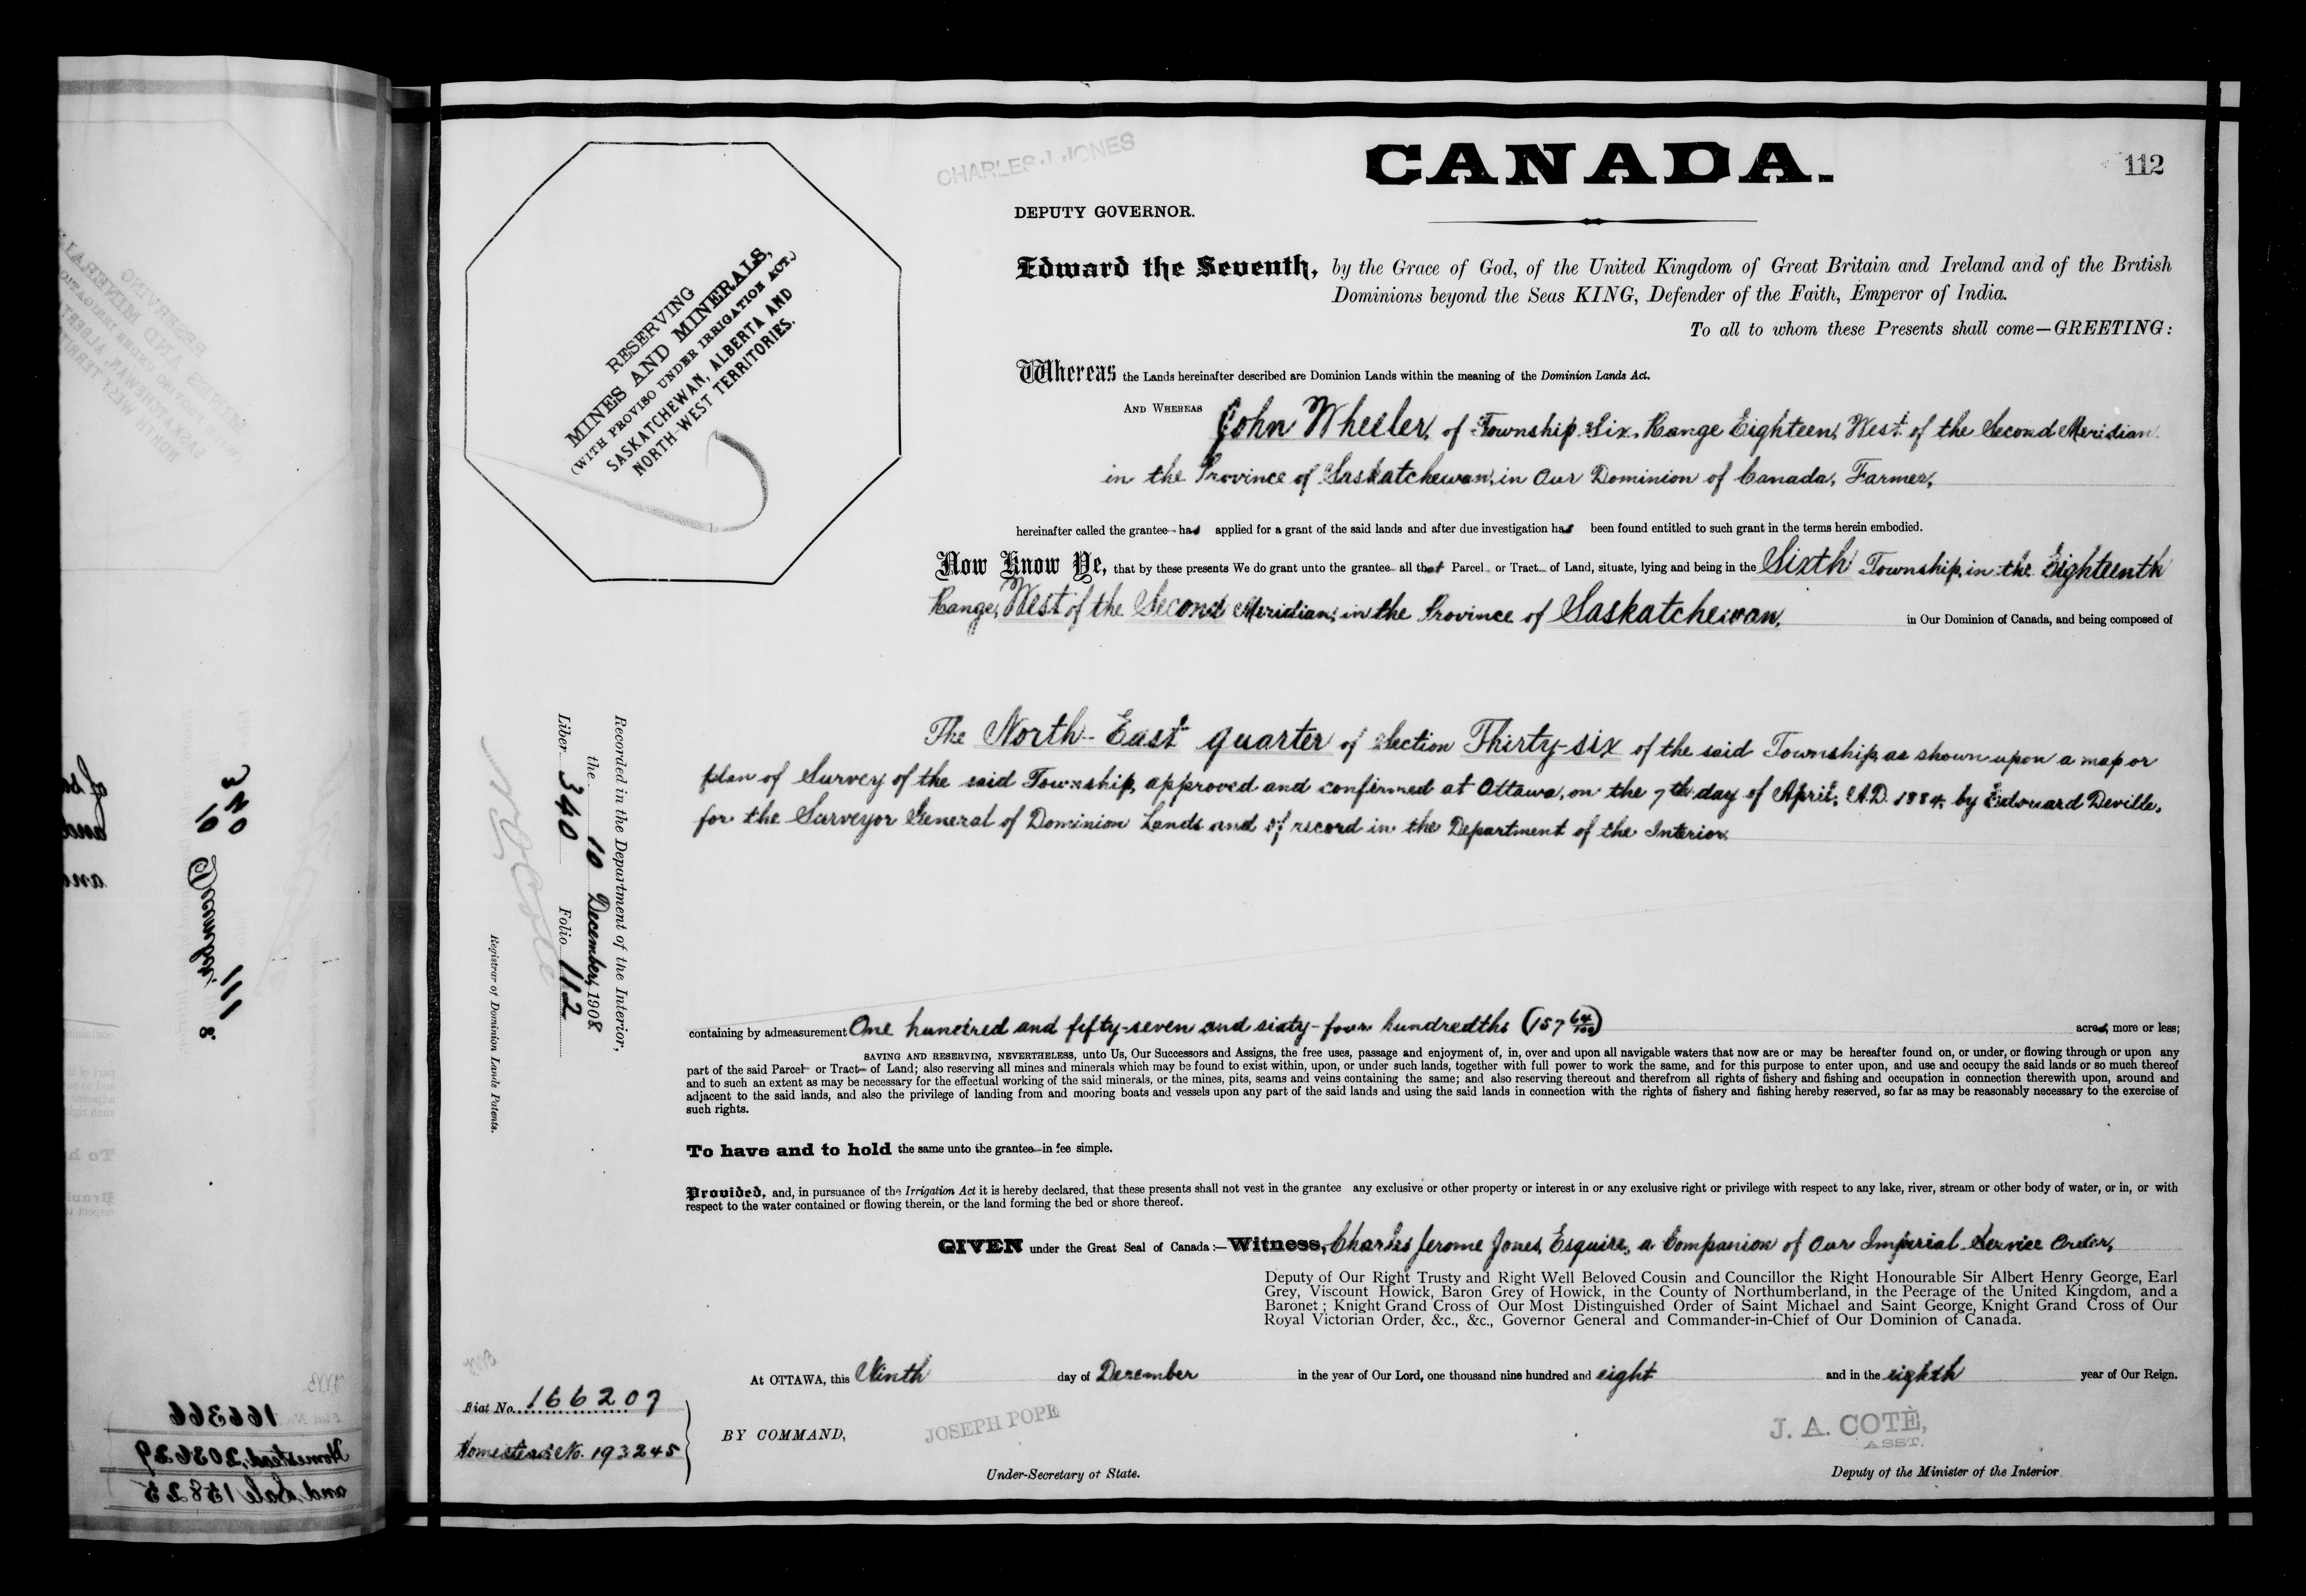 CHARLES J. JONES
CANADA.
112
DEPUTY GOVERNOR.
Edward the Seventh, by the Grace of God, of the United Kingdom of Great Britain and Ireland and of the British
Dominions beyond the Seas KING, Defender of the Faith, Emperor of India.
To all to whom these Presents shall come—GREETING:
RESERVING
MINES AND MINERALS,
(WITH PROVISO UNDER IRRIGATION ACT.)
SASKATCHEWAN, ALBERTA AND
NORTH-WEST TERRITORIES.
Whereas the Lands hereinafter described are Dominion Lands within the meaning of the Dominion Lands Act.
AND WHEREAS John Wheeler, of Township Six, Range Eighteen, West of the Second Meridian
in the Province of Saskatchewan, in Our Dominion of Canada, Farmer,
hereinafter called the grantee has applied for a grant of the said lands and after due investigation has been found entitled to such grant in the terms herein embodied.
Now Know Ye, that by these presents We do grant unto the grantee all that Parcel or Tract of Land, situate, lying and being in the Sixth Township, in the Eighteenth
Range, West of the Second Meridian, in the Province of Saskatchewan, in Our Dominion of Canada, and being composed of
The North-East quarter of Section Thirty-six of the said Township, as shown upon a map or
plan of Survey of the said Township, approved and confirmed at Ottawa, on the 7th day of April, A.D. 1884, by Edouard Deville,
for the Surveyor General of Dominion Lands and of record in the Department of the Interior.
Recorded in the Department of the Interior,
the 10 December, 1908
Liber 340 Folio 112
Registrar of Dominion Lands Patents.
containing by admeasurement One hundred and fifty-seven and sixty-four hundredths (157 64/100) acres, more or less;
SAVING AND RESERVING, NEVERTHELESS, unto Us, Our Successors and Assigns, the free uses, passage and enjoyment of, in, over and upon all navigable waters that now are or may be hereafter found on, or under, or flowing through or upon any
part of the said Parcel or Tract of Land; also reserving all mines and minerals which may be found to exist within, upon, or under such lands, together with full power to work the same, and for this purpose to enter upon, and use and occupy the said lands or so much thereof
and to such an extent as may be necessary for the effectual working of the said minerals, or the mines, pits, seams and veins containing the same; and also reserving thereout and therefrom all rights of fishery and fishing and occupation in connection therewith upon, around and
adjacent to the said lands, and also the privilege of landing from and mooring boats and vessels upon any part of the said lands and using the said lands in connection with the rights of fishery and fishing hereby reserved, so far as may be reasonably necessary to the exercise of
such rights.
To have and to hold the same unto the grantee in fee simple.
Provided, and, in pursuance of the Irrigation Act it is hereby declared, that these presents shall not vest in the grantee any exclusive or other property or interest in or any exclusive right or privilege with respect to any lake, river, stream or other body of water, or in, or with
respect to the water contained or flowing therein, or the land forming the bed or shore thereof.
GIVEN under the Great Seal of Canada:—Witness, Charles Jerome Jones, Esquire, a Companion of Our Imperial Service Order,
Deputy of Our Right Trusty and Right Well Beloved Cousin and Councillor the Right Honourable Sir Albert Henry George, Earl
Grey, Viscount Howick, Baron Grey of Howick, in the County of Northumberland, in the Peerage of the United Kingdom, and a
Baronet; Knight Grand Cross of Our Most Distinguished Order of Saint Michael and Saint George, Knight Grand Cross of Our
Royal Victorian Order, &c., &c., Governor General and Commander-in-Chief of Our Dominion of Canada.
At OTTAWA, this Ninth day of December in the year of Our Lord, one thousand nine hundred and eight and in the eighth year of Our Reign.
Fiat No. 166207
Homestead No. 193245
BY COMMAND,
JOSEPH POPE
Under-Secretary of State.
J. A. COTÈ,
ASST.
Deputy of the Minister of the Interior
340
10 December
111
8
166366
Homestead, 203629
and Sale 15825